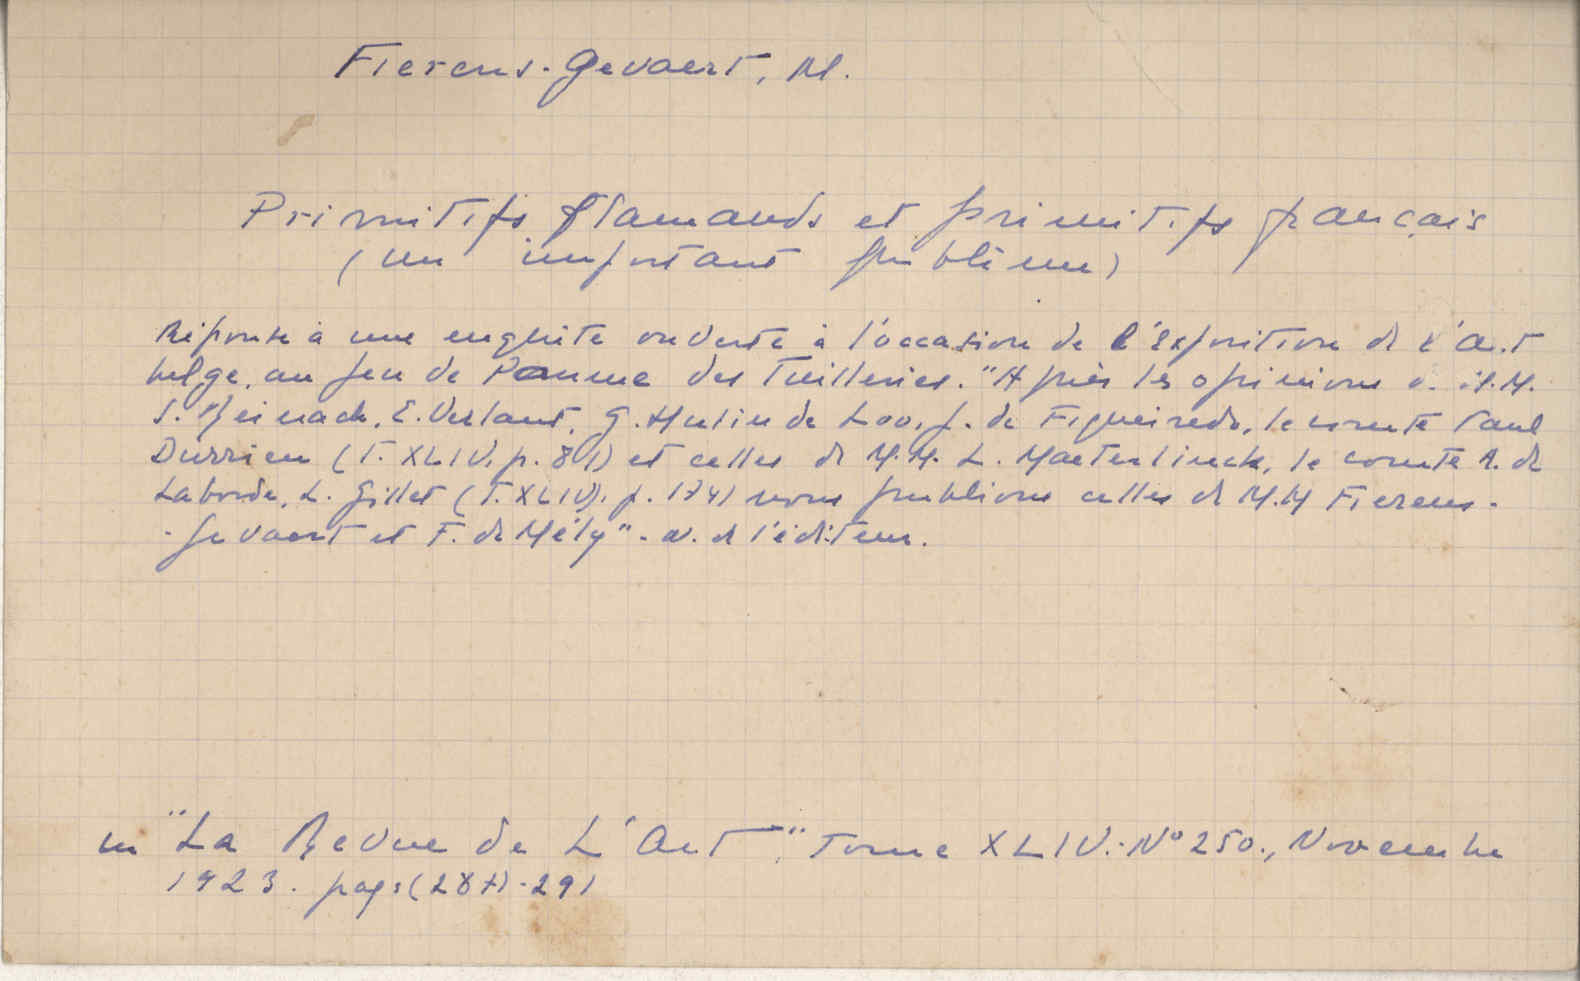 Fierens-Gevaert, M.
Primitifs flamands et primitifs français
(un important problème)
Réponse à une enquête ouverte à l'occasion de l'Exposition de l'Art
belge, au Jeu de Paume des Tuilleries. "Après les opinions d. M.M.
S. Reinach, E. Verlant, G. Hulin de Loo, J. de Figueiredo, le comte Paul
Durrieu (T. XLIV, p. 81) et celles de M.M. L. Maeterlinck, le comte A. de
Laborde, L. Gillet (T. XLIV), p. 174) nous publions celles de M.M Fierens-
-Gevaert et F. de Mély" - N. de l'éditeur.
in "La Revue de L'Art", Tome XLIV.- Nº 250., Novembre
1923. pags (287)-291